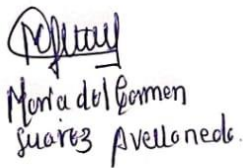 Maria del Carmen
Suarez Avellaneda.